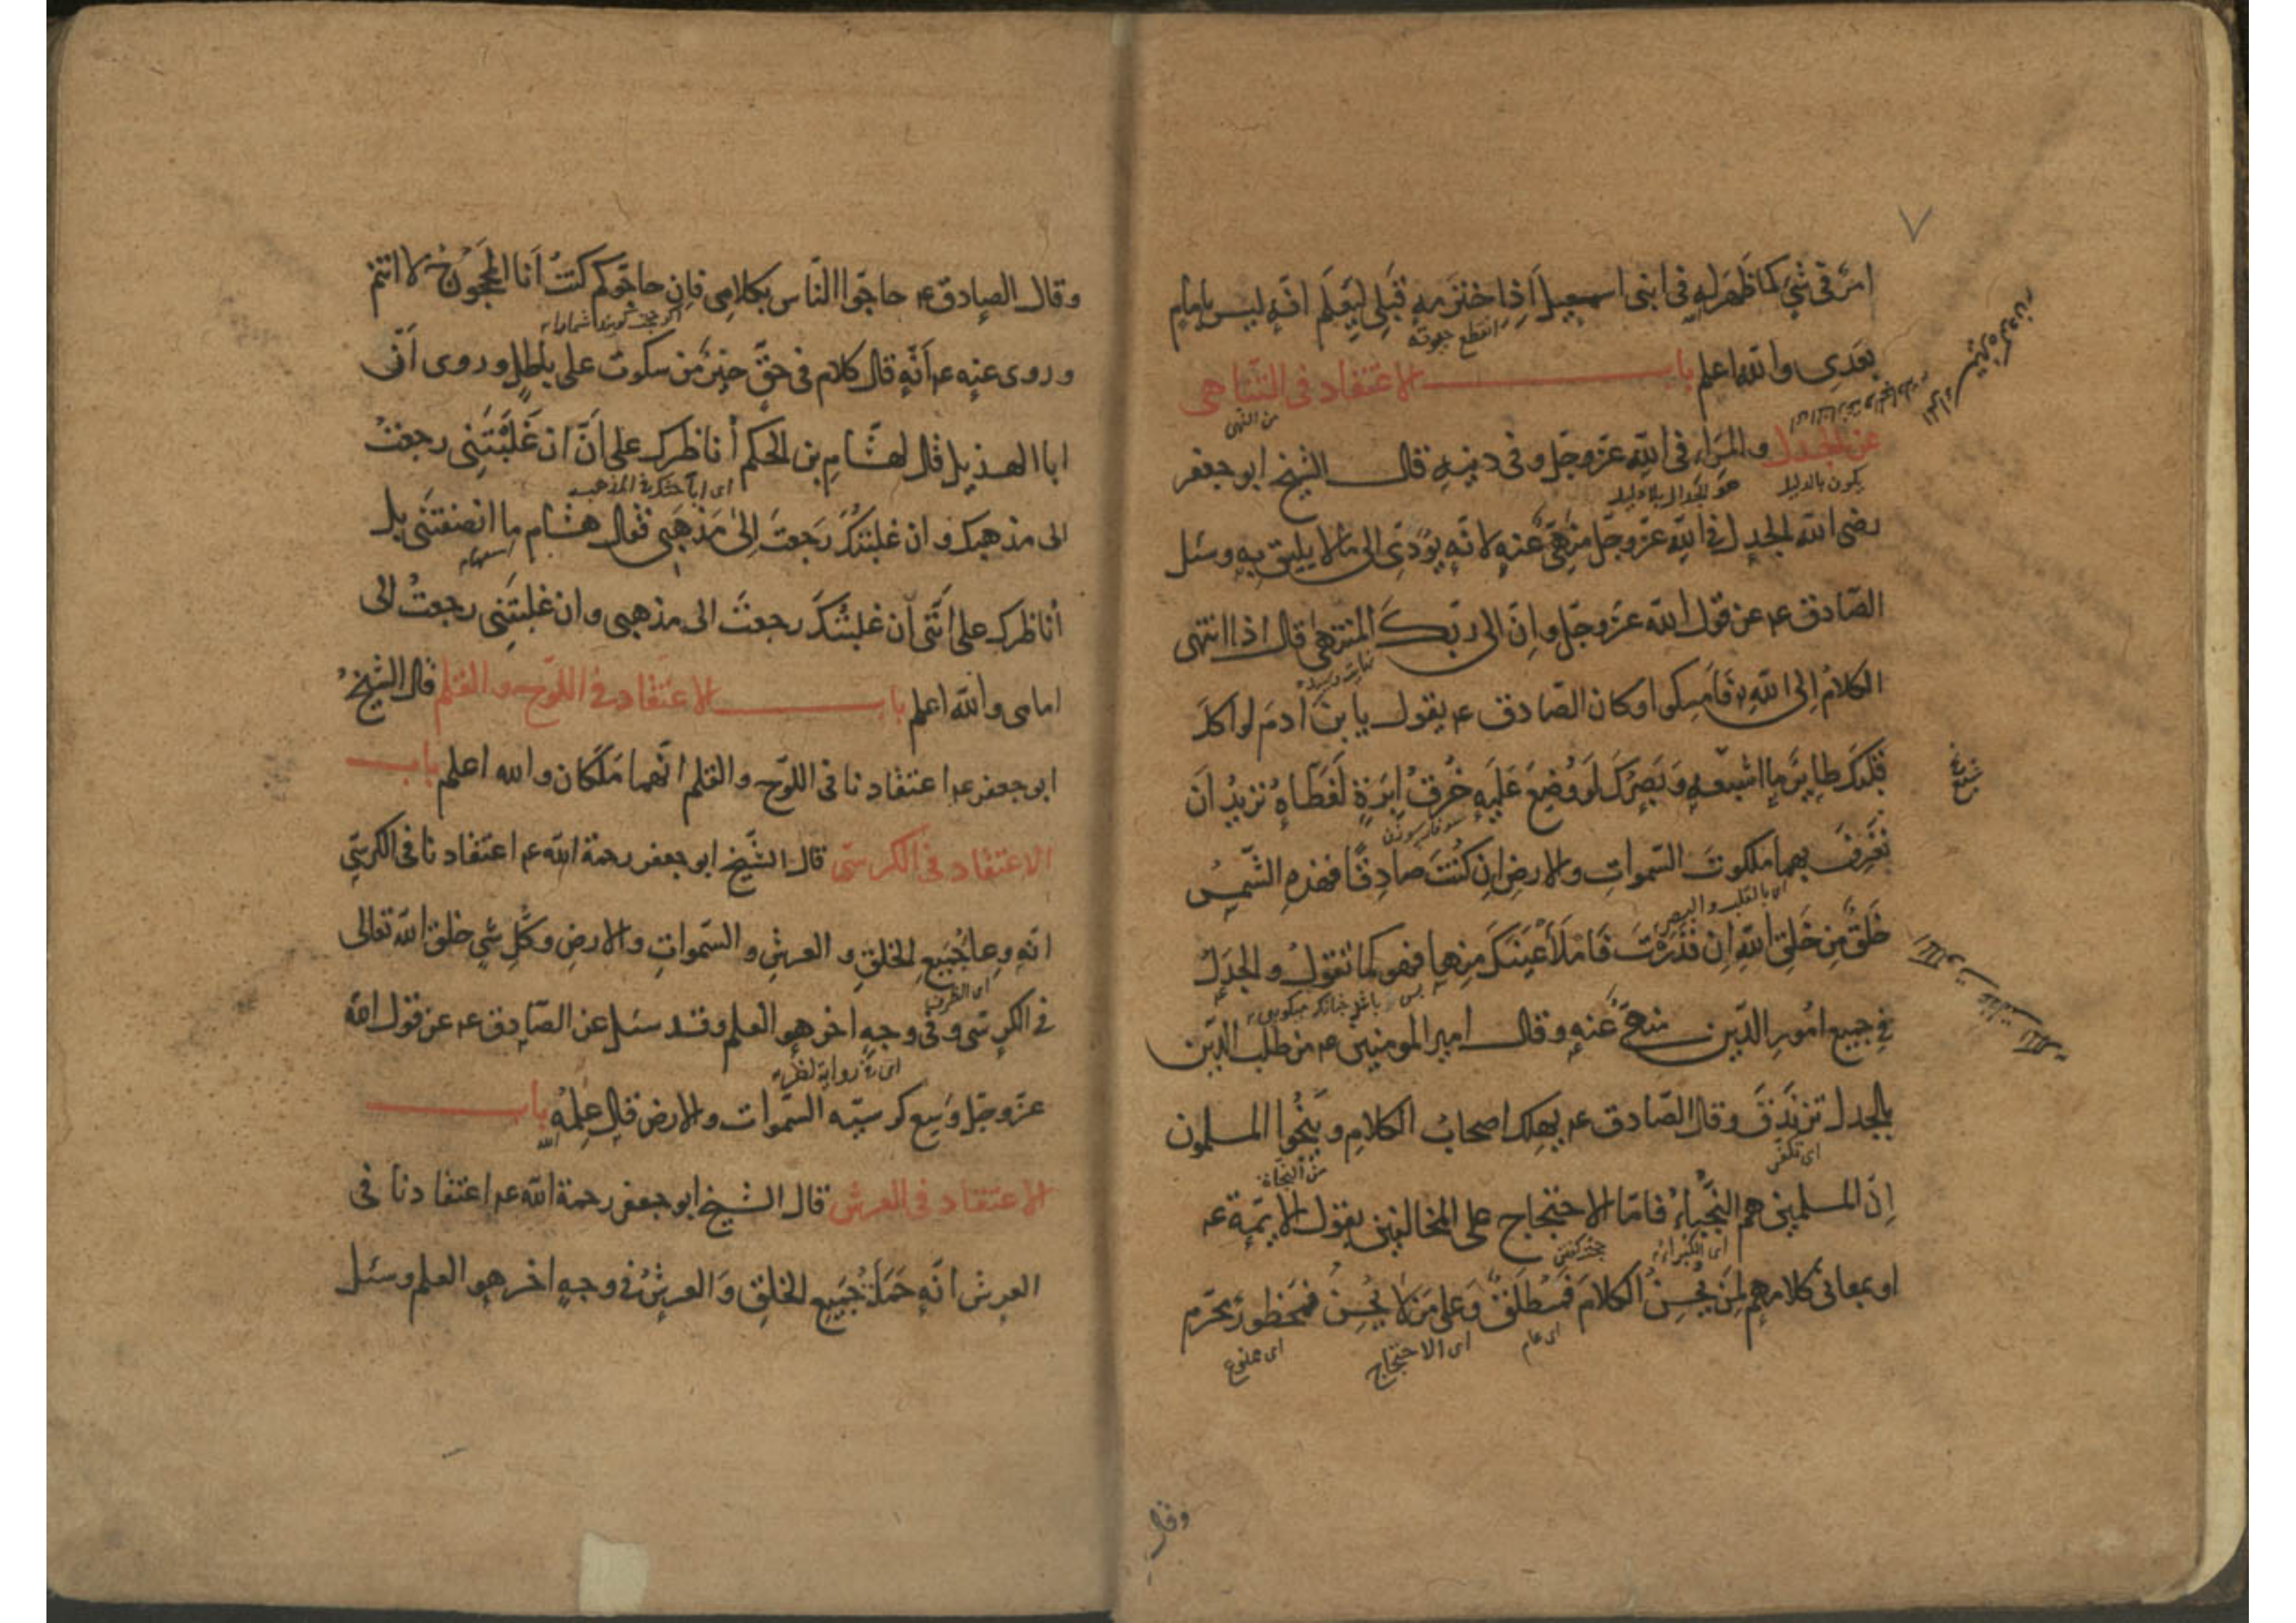 ٧
امر فى شئ كما ظهر له فى ابنى اسمعيل اذا خترمه قبلى ليعلم انه ليس بامام
بعدى والله اعلم باب الاعتقاد فى التناهى
عن الجدل والمراء فى الله عز وجل وفى دينه قال الشيخ ابو جعفر
يكون بالدليل
هو الجدال بلا دليل
رضى الله الجدل فى الله عز وجل منهى عنه لانه يؤدى الى ما لا يليق به وسئل
الصادق عم عن قول الله عز وجل وان الى ربك المنتهى قال اذا انتهى
الكلام الى الله فامسكوا وكان الصادق عم يقول يا بن ادم لو اكل
قلبك طاير ما اشبعه وبصرك لو وضع عليه خرق ابرة لغطاه تريد ان
تعرف بهما ملكوت السموات والارض ان كنت صادقا فهذه الشمس
اى بالقلب والبصر
خلق من خلق الله ان قدرت فاملأ عينك منها فهو كما تقول والجدل
فى جميع امور الدين منهى عنه وقال امير المومنين عم من طلب الدين
بالجدل تزندق وقال الصادق عم يهلك اصحاب الكلام وينجوا المسلمون
اى تكفر
من النجاة
ان المسلمين هم النجباء فاما الاحتجاج على المخالفين بقول الايمة عم
او بمعانى كلامهم لمن يحسن الكلام فمطلق وعلى من لا يحسن فمحظور محرم
اى عام
اى الاحتجاج
اى ممنوع
وقال
وقال الصادق عم حاجوا الناس بكلامى فان حاجوكم كنت انا المحجوج لا انتم
وروى عنه عم أنه قال كلام فى حق خير من سكوت على باطل وروى أن
ابا الهذيل قال لهشام بن الحكم أناظرك على أن ان غلبتنى رجعت
الى مذهبك وان غلبتك رجعت الى مذهبى فقال هشام ما انصفتنى بل
أناظرك على أننى ان غلبتك رجعت الى مذهبى وان غلبتنى رجعت الى
امامى والله اعلم باب الاعتقاد فى اللوح والقلم قال الشيخ
ابو جعفر عم اعتقادنا فى اللوح والقلم انهما ملكان والله اعلم باب
الاعتقاد فى الكرسى قال الشيخ ابو جعفر رحمة الله عم اعتقادنا فى الكرسى
انه وعا جميع الخلق و العرش و السموات والارض وكل شي خلق الله تعالى
اى الظرف
فى الكرسى وفى وجه اخر هو العلم وقد سئل عن الصادق عم عن قول الله
عز وجل وسع كرسيه السموات والارض قال علمه باب
الاعتقاد فى العرش قال الشيخ ابو جعفر رحمة الله عم اعتقادنا فى
العرش انه حملة جميع الخلق والعرش فى وجه اخر هو العلم وسئل